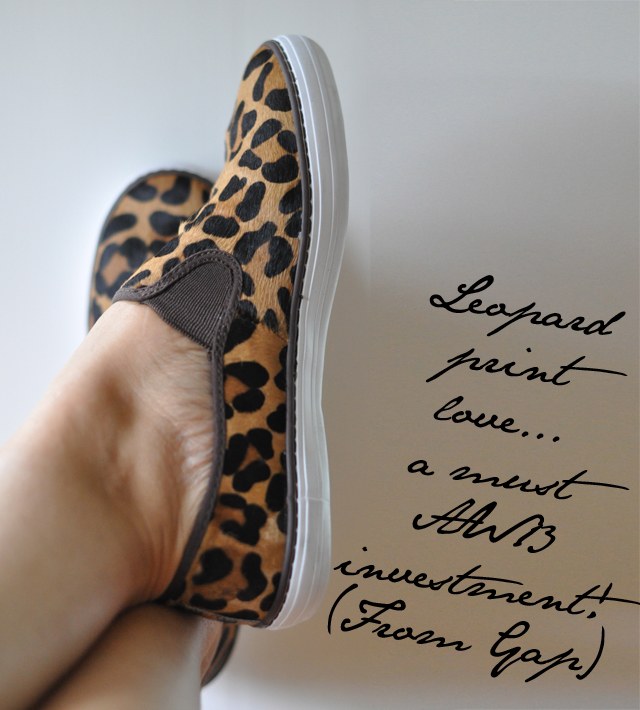 Leopard
print
love...
a must
AW13
investment!
(From Gap)